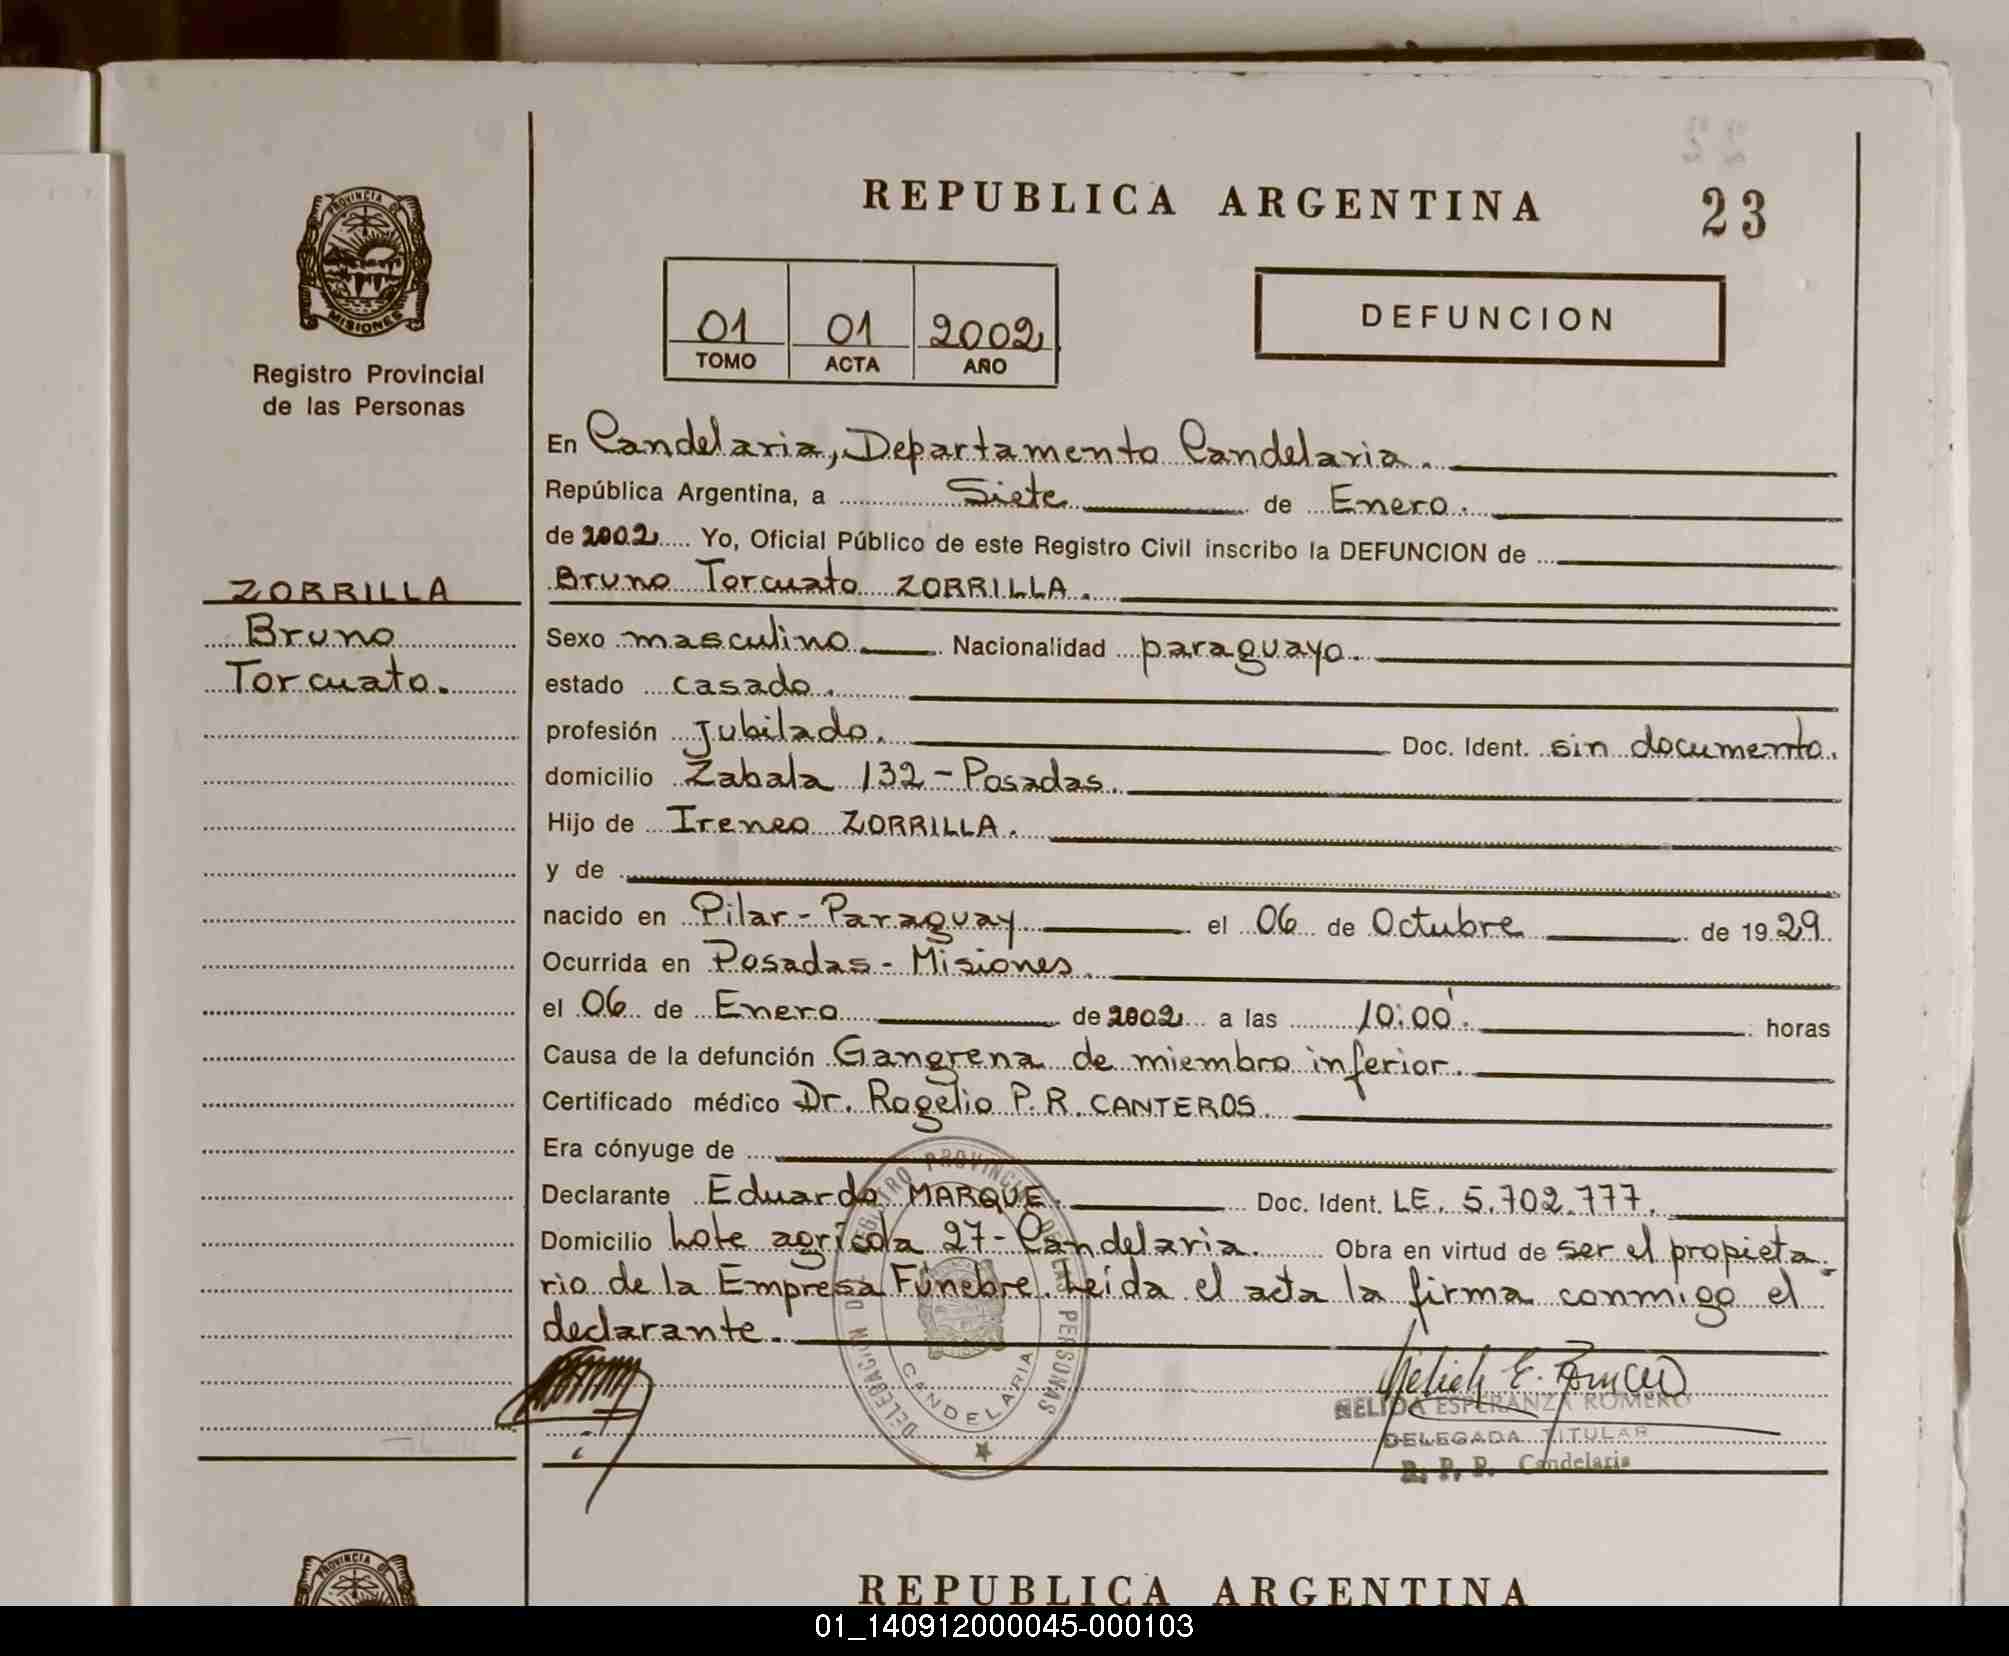 REPUBLICA ARGENTINA
23
PROVINCIA DE
MISIONES
Registro Provincial
de las Personas
01 01 2002
TOMO ACTA AÑO
DEFUNCION
En Candelaria, Departamento Candelaria.
República Argentina, a Siete de Enero.
de 2002 Yo, Oficial Público de este Registro Civil inscribo la DEFUNCION de
Bruno Torcuato ZORRILLA.
ZORRILLA
Bruno
Torcuato.
Sexo masculino Nacionalidad paraguayo.
estado casado.
profesión Jubilado. Doc. Ident. sin documento.
domicilio Zabala 132 - Posadas.
Hijo de Ireneo ZORRILLA.
y de
nacido en Pilar - Paraguay el 06 de Octubre de 1929.
Ocurrida en Posadas - Misiones.
el 06 de Enero de 2002 a las 10:00'. horas
Causa de la defunción Gangrena de miembro inferior.
Certificado médico Dr. Rogelio P.R. CANTEROS.
Era cónyuge de
Declarante Eduardo MARQUE. Doc. Ident. LE. 5.702.777.
Domicilio Lote agrícola 27 - Candelaria. Obra en virtud de ser el propieta-
rio de la Empresa Fúnebre. Leída el acta la firma conmigo el
declarante.
REGISTRO PROVINCIAL DE LAS PERSONAS
DELEGACION
CANDELARIA
NELIDA ESPERANZA ROMERO
DELEGADA TITULAR
R. P. P. Candelaria
PROVINCIA DE
REPUBLICA ARGENTINA
01_140912000045-000103